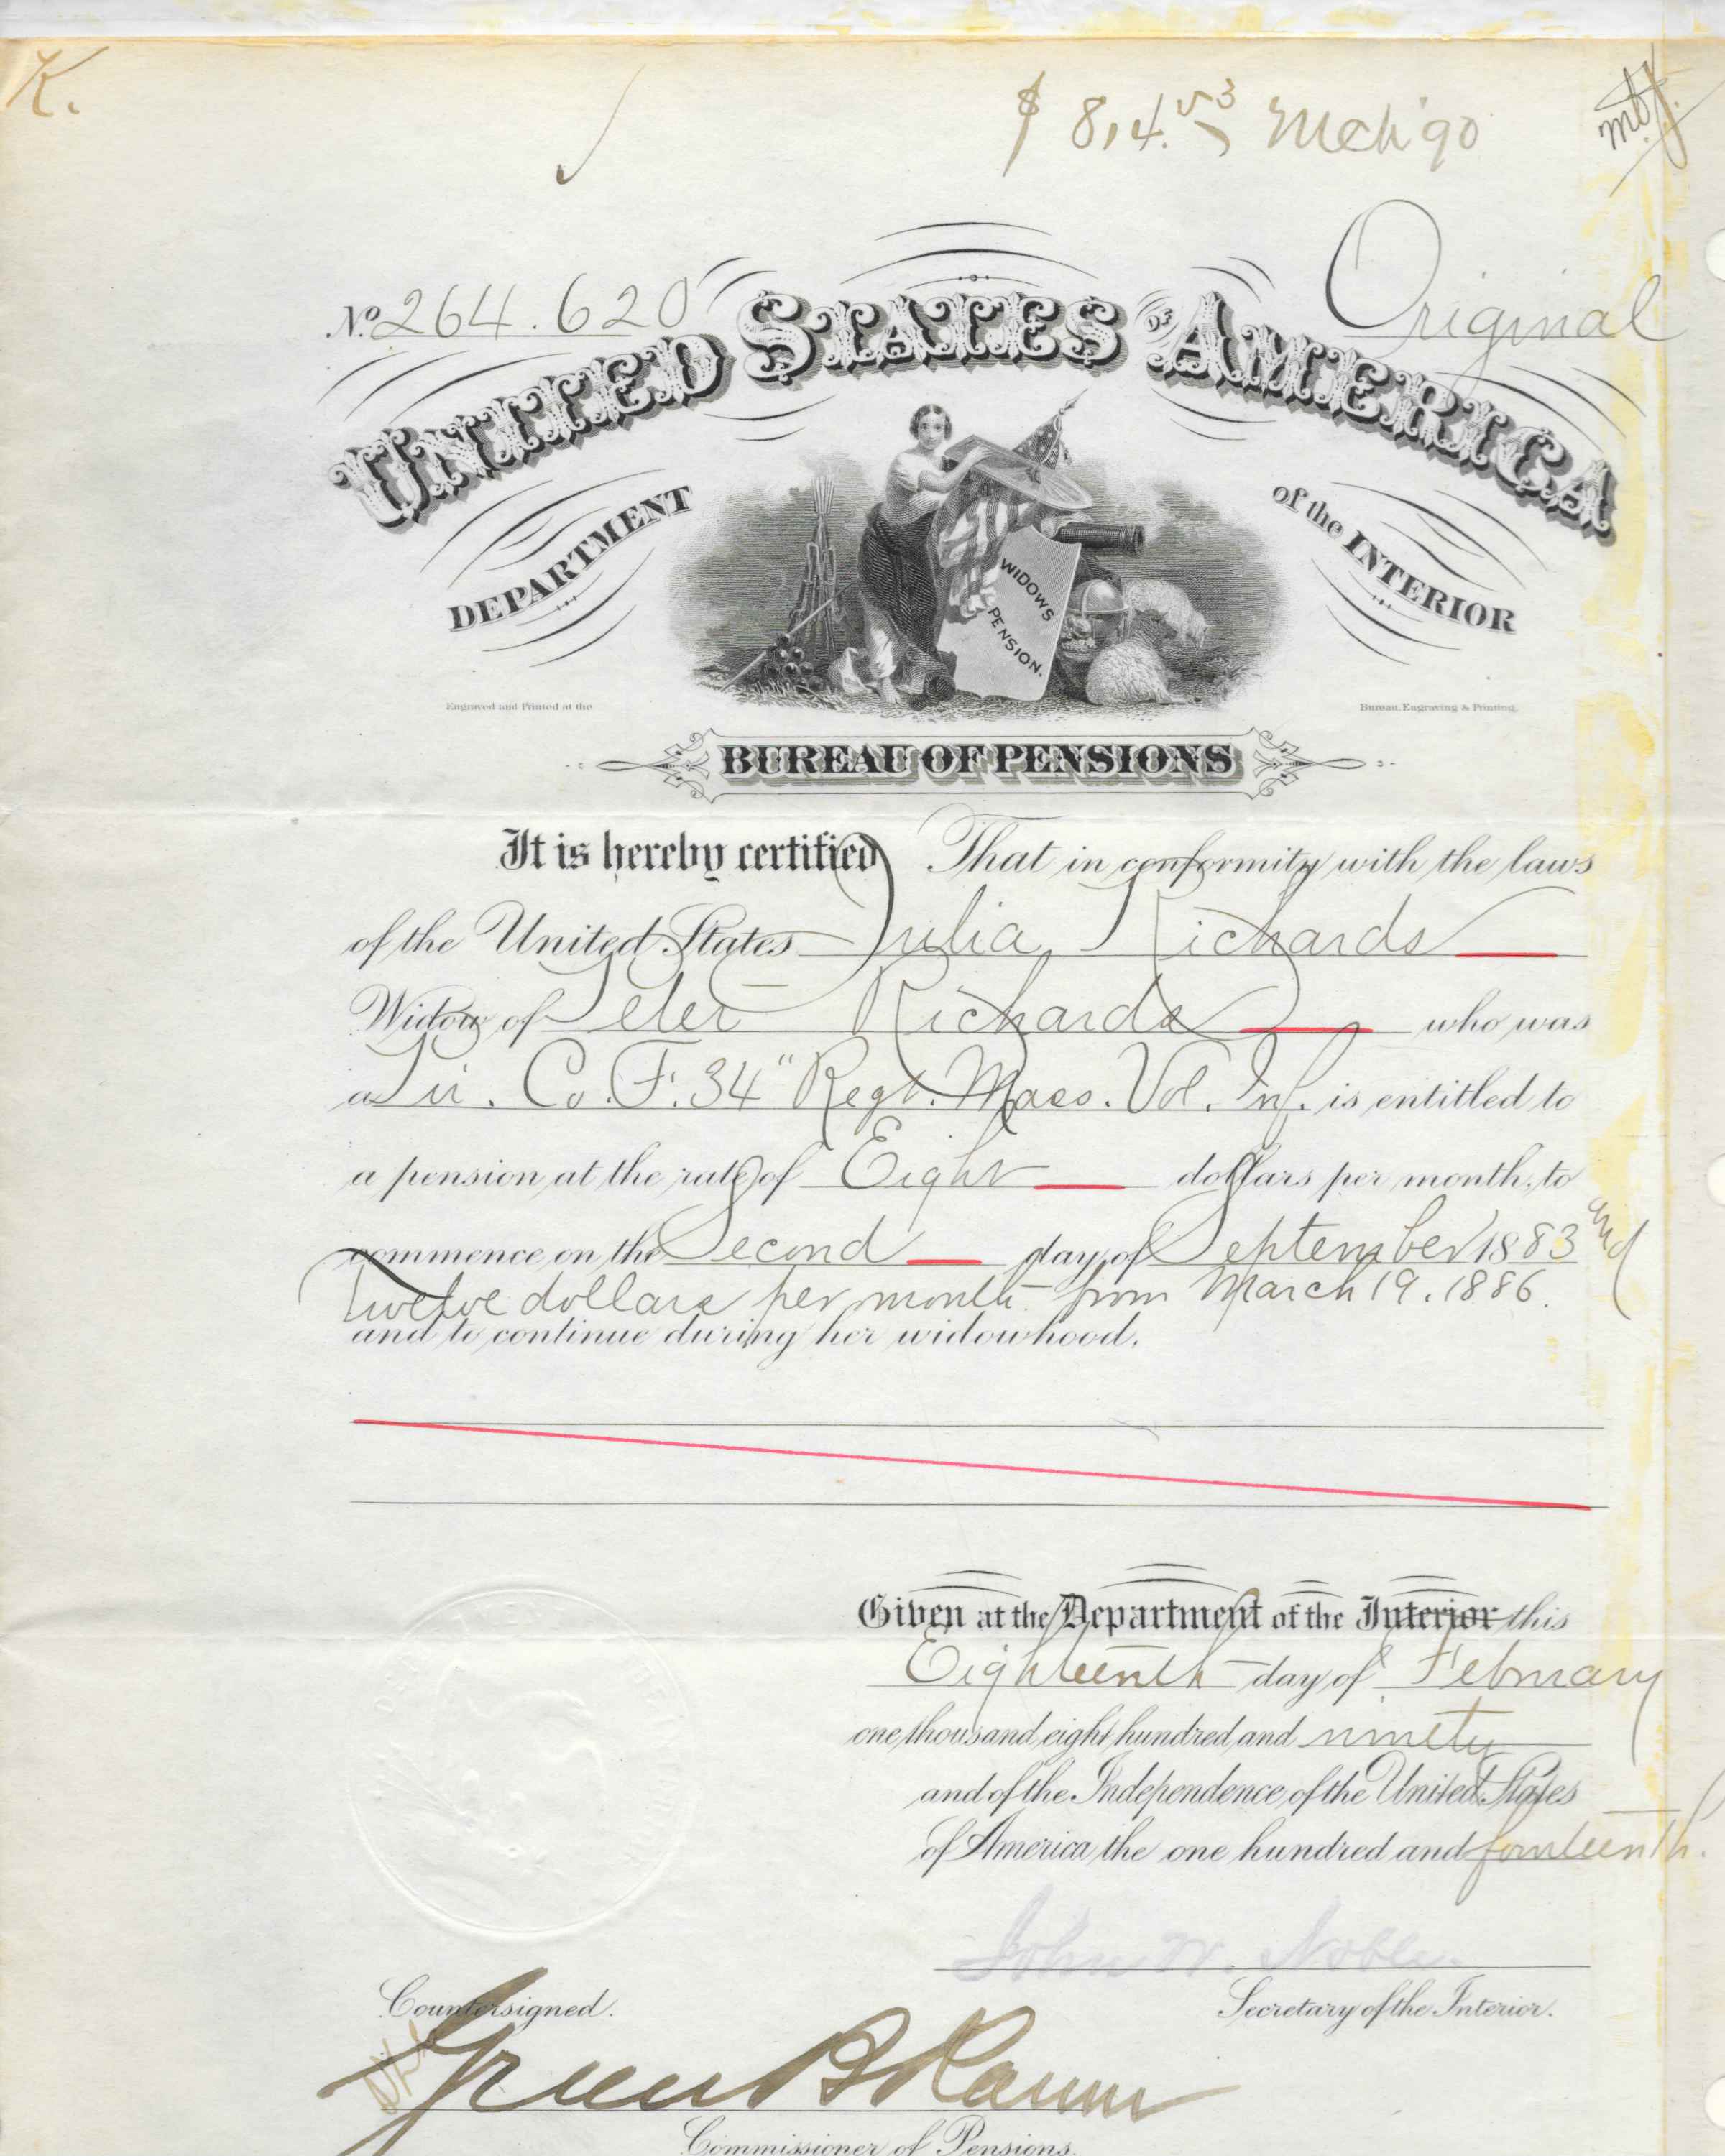 K.
$ 814.53 Mch '90
Original
No. 264.620
UNITED STATES OF AMERICA
DEPARTMENT of the INTERIOR
WIDOWS
PENSION.
Engraved and Printed at the Bureau, Engraving & Printing.
BUREAU OF PENSIONS
It is hereby certified That in conformity with the laws
of the United States Julia Richards
Widow of Peter Richards who was
a Pri. Co. F. 34" Regt. Mass. Vol. Inf. is entitled to
a pension at the rate of Eight dollars per month, to
commence on the Second day of September 1883 and
twelve dollars per month from March 19. 1886.
and to continue during her widowhood.
Given at the Department of the Interior this
Eighteenth day of February
one thousand eight hundred and ninety
and of the Independence of the United States
of America the one hundred and fourteenth.
John W. Noble
Secretary of the Interior.
Countersigned.
Green B Raum
Commissioner of Pensions.